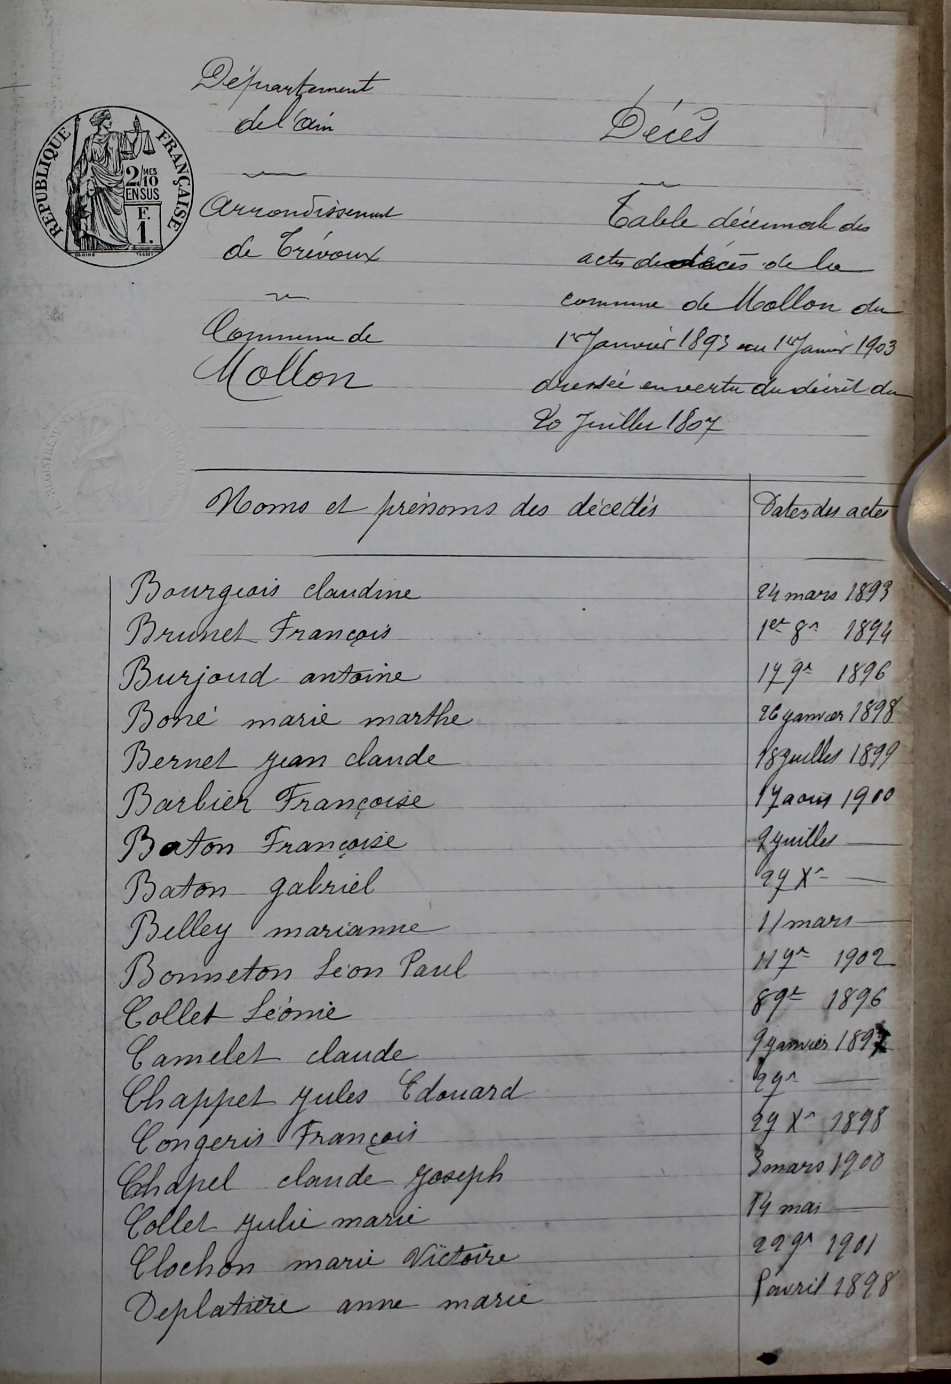 Département
de l'Ain
Arrondissement
de Trévoux
Commune de
Mollon
RÉPUBLIQUE FRANÇAISE
2/10 MES
EN SUS
F.
1.
Décès
Table décennale des
actes de décès de la
commune de Mollon du
1er Janvier 1893 au 1er Janvier 1903
dressée en vertu du décret du
20 Juillet 1807
Noms et prénoms des décédés Dates des actes
Bourgeois claudine 24 mars 1893
Brunet François 1er 8re 1894
Burjoud antoine 17 9re 1896
Boné marie marthe 26 janvier 1898
Bernet jean claude 18 juillet 1899
Barbier Françoise 17 aout 1900
Baton Françoise 2 juillet —
Baton gabriel 27 Xre —
Belley marianne 11 mars —
Bonneton Léon Paul 11 7re 1902
Collet Léonie 8 9re 1896
Camelet claude 9 janvier 1897
Chappet jules Edouard 2 9re —
Congeris François 27 Xre 1898
Chapel claude joseph 3 mars 1900
Collet julie marie 14 mai —
Clochon marie Victoire 22 9re 1901
Deplatière anne marie avril 1898